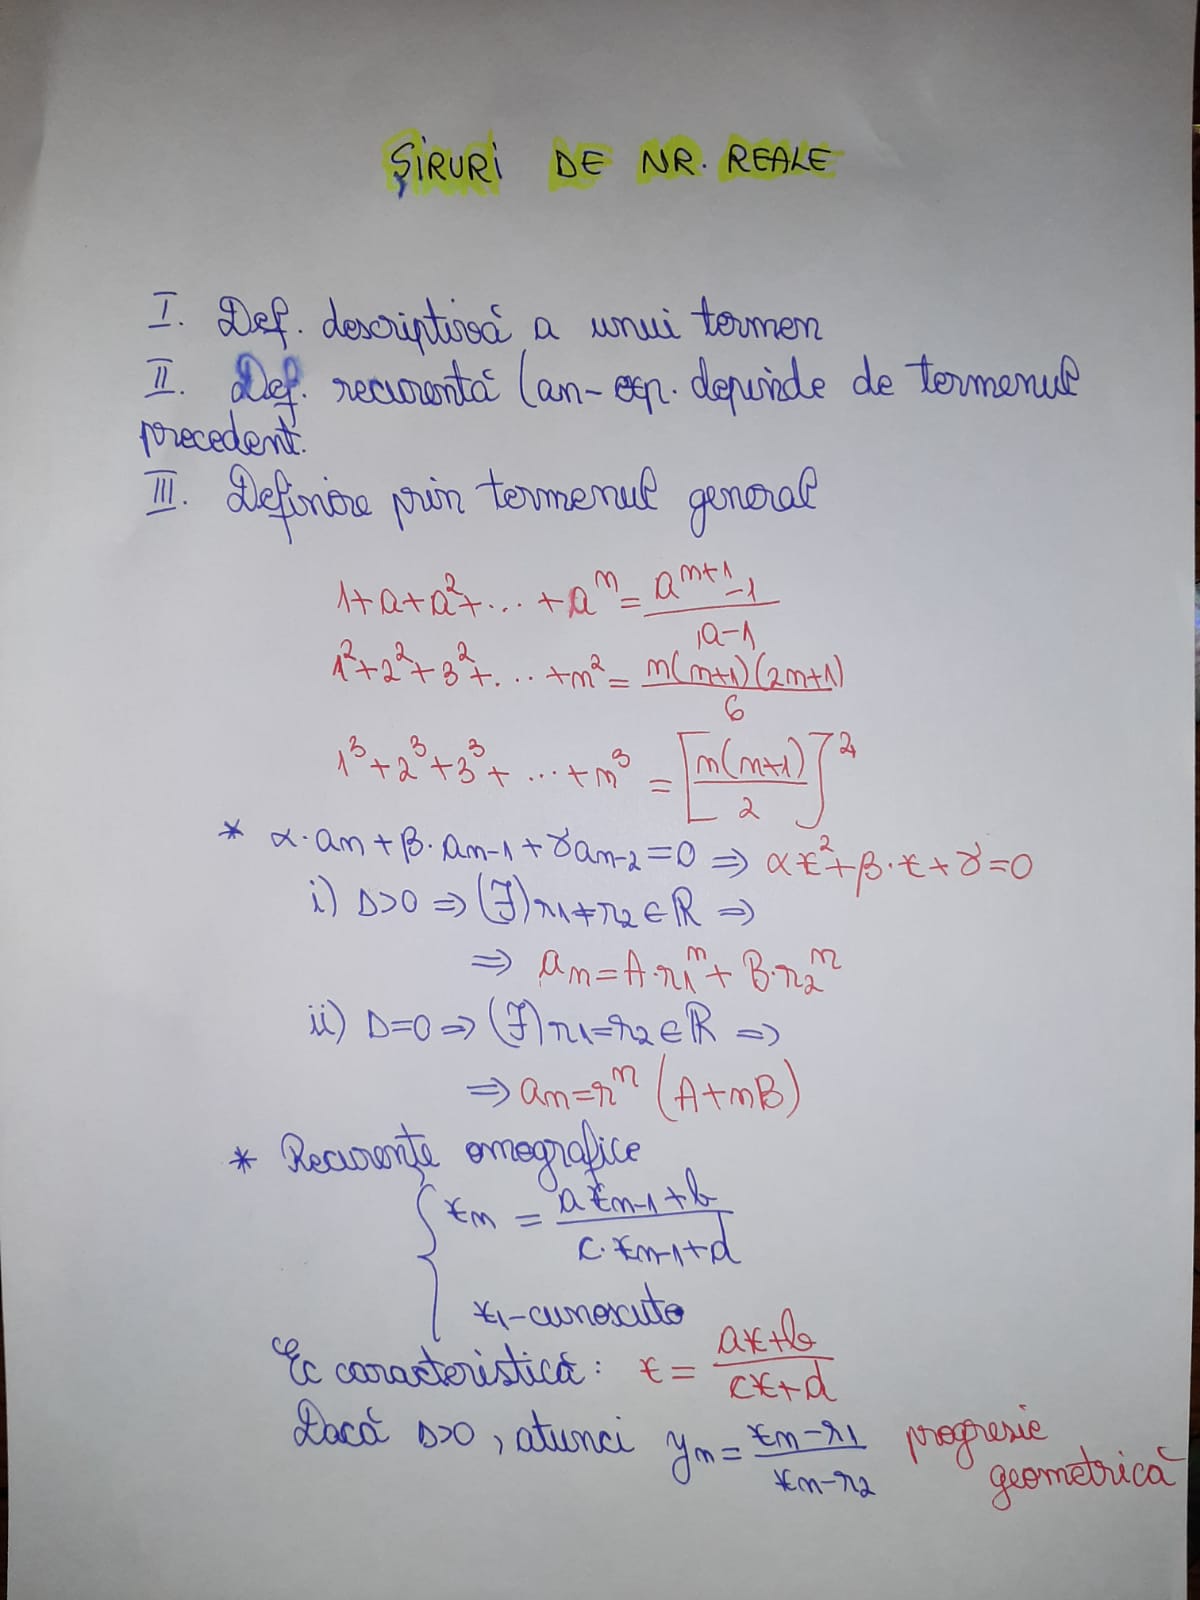 ȘIRURI DE NR. REALE
I. Def. descriptivă a unui termen
II. Def. recurentă (an- exp. depinde de termenul
precedent.
III. Definire prin termenul general
1+a+a²+...+aⁿ = (aⁿ⁺¹-1)/(a-1)
1²+2²+3²+...+n² = n(n+1)(2n+1)/6
1³+2³+3³+...+n³ = [n(n+1)/2]²
* α·an+β·an-1+γan-2=0 ⇒ αx²+β·x+γ=0
i) Δ>0 ⇒ (∃) r1≠r2∈ℝ ⇒
⇒ an=A·r1ⁿ+B·r2ⁿ
ii) Δ=0 ⇒ (∃) r1=r2∈ℝ ⇒
⇒ an=rⁿ (A+nB)
* Recurențe omografice
{ xn = (axn-1+b)/(c·xn-1+d)
x1-cunoscute
Ec caracteristică: x = (ax+b)/(cx+d)
Dacă Δ>0, atunci yn = (xn-r1)/(xn-r2) progresie
geometrică